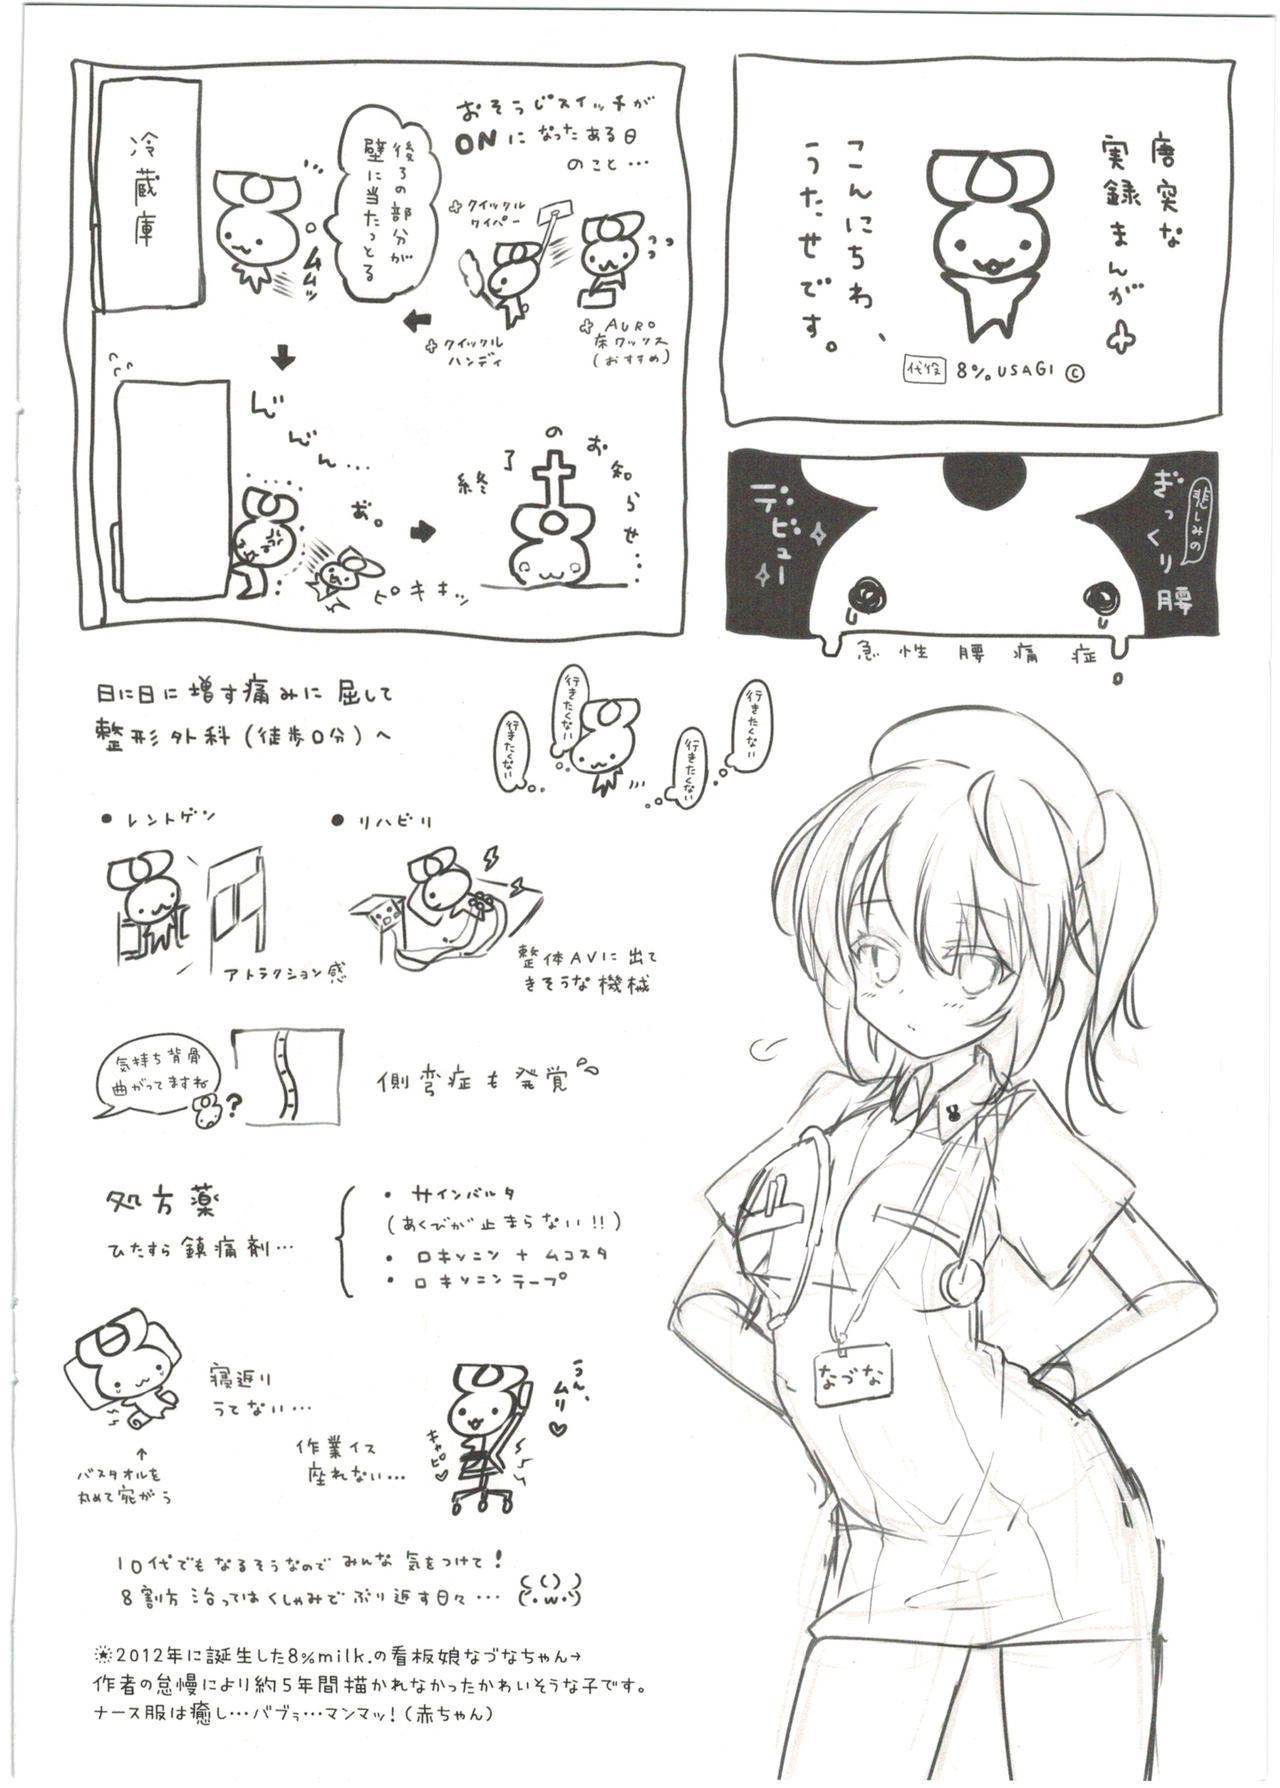 唐突な
実録まんが
こんにちわ、
うたせです。
代役 8%USAGI ©
悲しみの
ぎっくり腰
デビュー
急性腰痛症
おそうじスイッチが
ONになったある日
のこと…
クイックル
ワイパー
AURO
床ワックス
(おすすめ)
クイックル
ハンディ
後ろの部分が
壁に当たっとる
ムムッ
冷蔵庫
んん゛ん…
あ。
ピキキッ
終了のお知らせ…
日に日に増す痛みに屈して
整形外科(徒歩0分)へ
行きたくない
行きたくない
行きたくない
行きたくない
●レントゲン
アトラクション感
●リハビリ
整体AVに出て
きそうな機械
気持ち背骨
曲がってますね
?
側弯症も発覚
処方薬
ひたすら鎮痛剤…
・サインバルタ
(あくびが止まらない!!)
・ロキソニン+ムコスタ
・ロキソニンテープ
寝返り
うてない…
↑
バスタオルを
丸めて宛がう
作業イス
座れない…
うん、
ムリ♡
キャピ♡
10代でもなるそうなのでみんな気をつけて!
8割方治ってはくしゃみでぶり返す日々…
(・w・)
なづな
※2012年に誕生した8%milk.の看板娘なづなちゃん→
作者の怠慢により約5年間描かれなかったかわいそうな子です。
ナース服は癒し…バブゥ…マンマッ!(赤ちゃん)